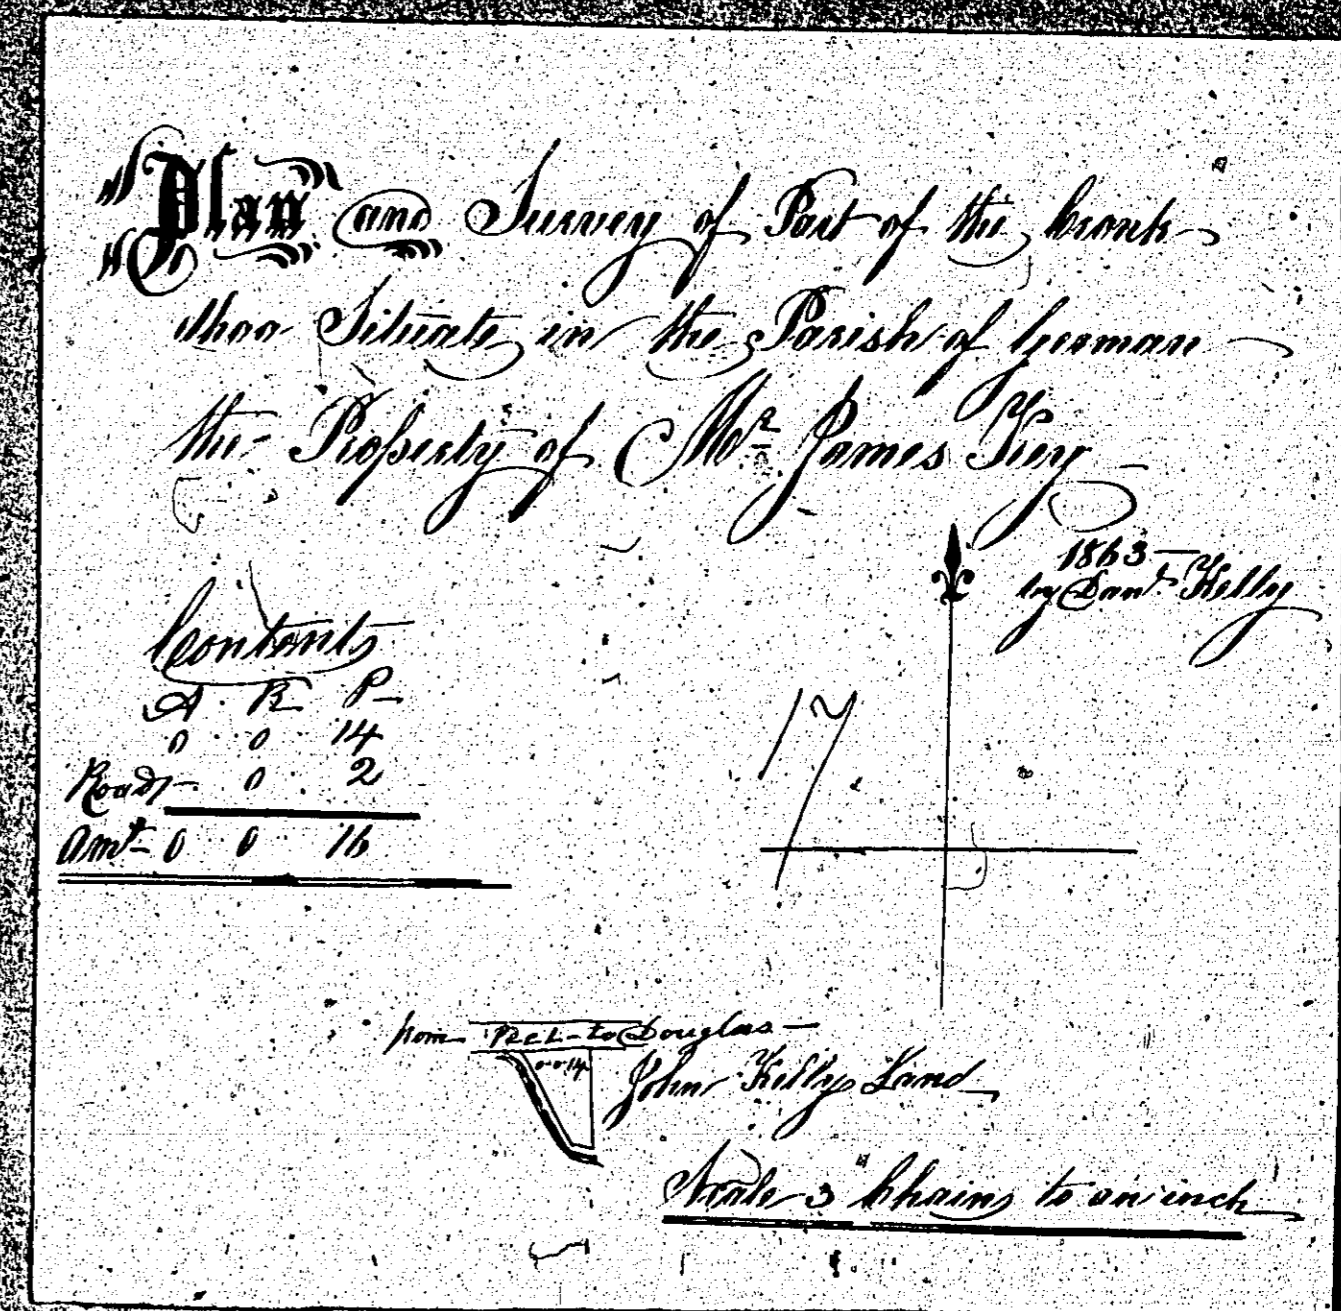 Plan and Survey of Part of the Cronk
dhoo Situate in the Parish of German
the Property of Mr James Kery
1863
by Danl. Kelly
Contents
A. R P
0 0 14
Road 0 2
Amt 0 0 16
17
from Peel to Douglas
0 0 14
John Kellys Land
Scale 3 Chains to an inch